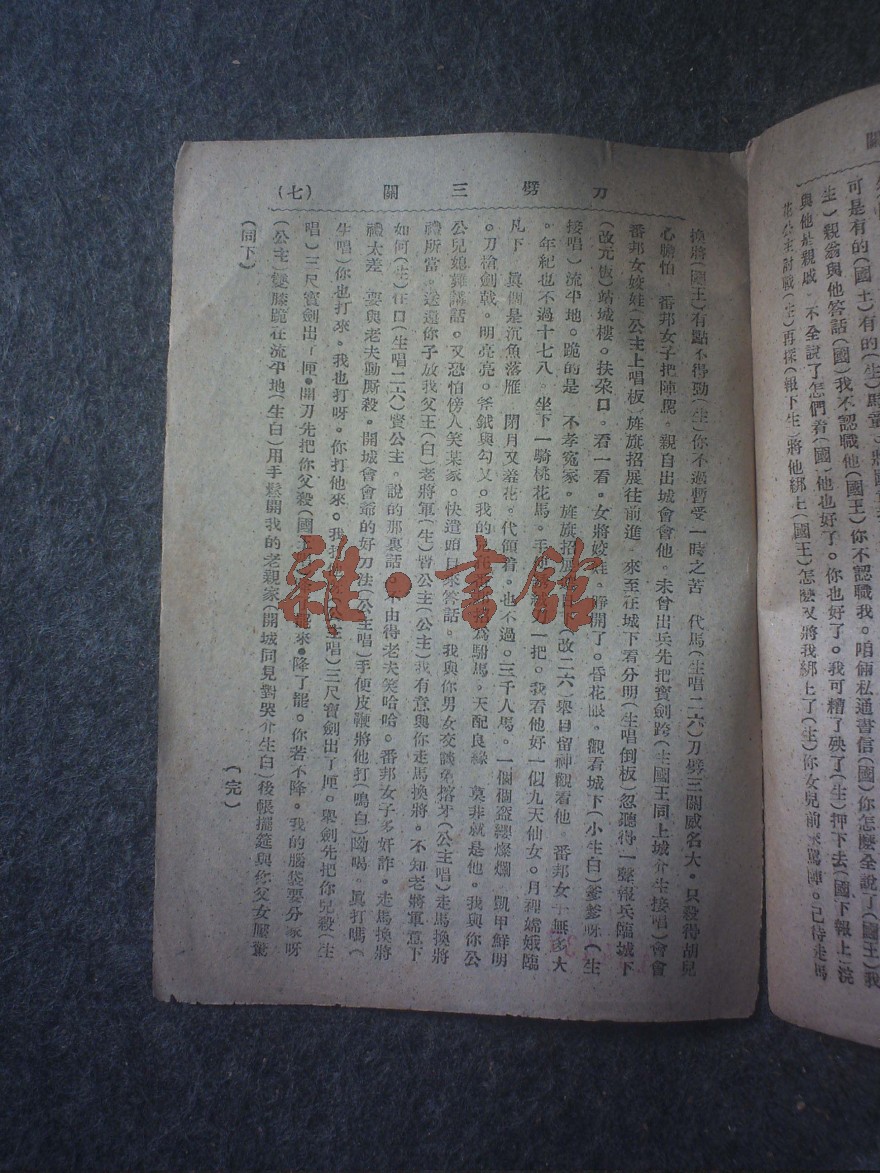 可是有的(國王)有的(生)馬童
生)親翁與他答話(國)我不認職他(國王)你不認職我。咱倆私通書信(國)你怎麼全說了(國王)我
與他是親戚 不全說了怎們看(國)他也好了。你也好了。我可糟了殃了(生)押下去(國下報上)浣
花公主討戰(生)再探(報下生)將他綁上(國王)怎麼又將我綁上了(生)你女兒前來罵陣。已待走馬
刀劈三關
(七)
換將(國王)有點不得勁(生)你不過暫受一時之苦 代馬(生唱二六)刀劈三關威名大。只殺得胡兒
心膽怕 番邦女子把陣罵。親自出城會會他。未曾出兵先把寶劍跨(生國王同上城介生接唱)會會
番邦女姣娃(公主上唱板)旌旗招展往前進。來至在城下看分明(生唱倒板)忽聽得一聲報兵臨城下
(改元板)站城樓。扶朶口。看一看。女將姣娃。睜開了。昏花眼。觀看城下(小生白)爹爹呀(生
接唱)流平地。跪的是 不孝寃家。旌旗招展(改二六)舉目留神觀看他。番邦女子無多大
。年紀也不過十七八。坐下一騎桃花馬。手一把。我看他好一似九天仙女。月裡嫦娥臨
凡下 眞個是沉魚落雁 閉月又羞花。代領着。也不過。三千人馬。一個個盔纓燦爛 凱甲鮮明
。刀槍劍戟。明亮亮。斧鉞與勾叉。我的爲駙馬。天配良緣 莫非就是他。我與你公
公兒媳難講話。又恐怕傍人笑某家。快遣頭目來答話。我與你男女交談(公主唱)走馬換將
禮所當。送還你子放我父王(白)老將軍(生)皆公主(公主)我有意與你走馬換將。不知老將軍意下
如何(生)住口(生唱二六)賢公主。說的那裏話。不由得老夫笑哈哈。番邦女子多奸詐。走馬換將
禮太差 要與老夫動厮殺。開城會會爺的好刀法(公主唱)手使皮鞭將他打(鳴白)呦喝。眞打嗎(
生唱)你也打來。我也打呀。你打他來。我公主唱)三尺寶劍出了匣。舉劍先把你兒殺(生
唱)三尺寶劍出了匣。開刀先把你父殺(國王來。降了罷。你若不降。我的腦袋要分家呀
(公主)雙膝跪在流平地(生白)用手鬆開我的老親家(開城同見對哭介生白)後帳擺筵與你父女壓驚
(同下)
(完)
雜·書館